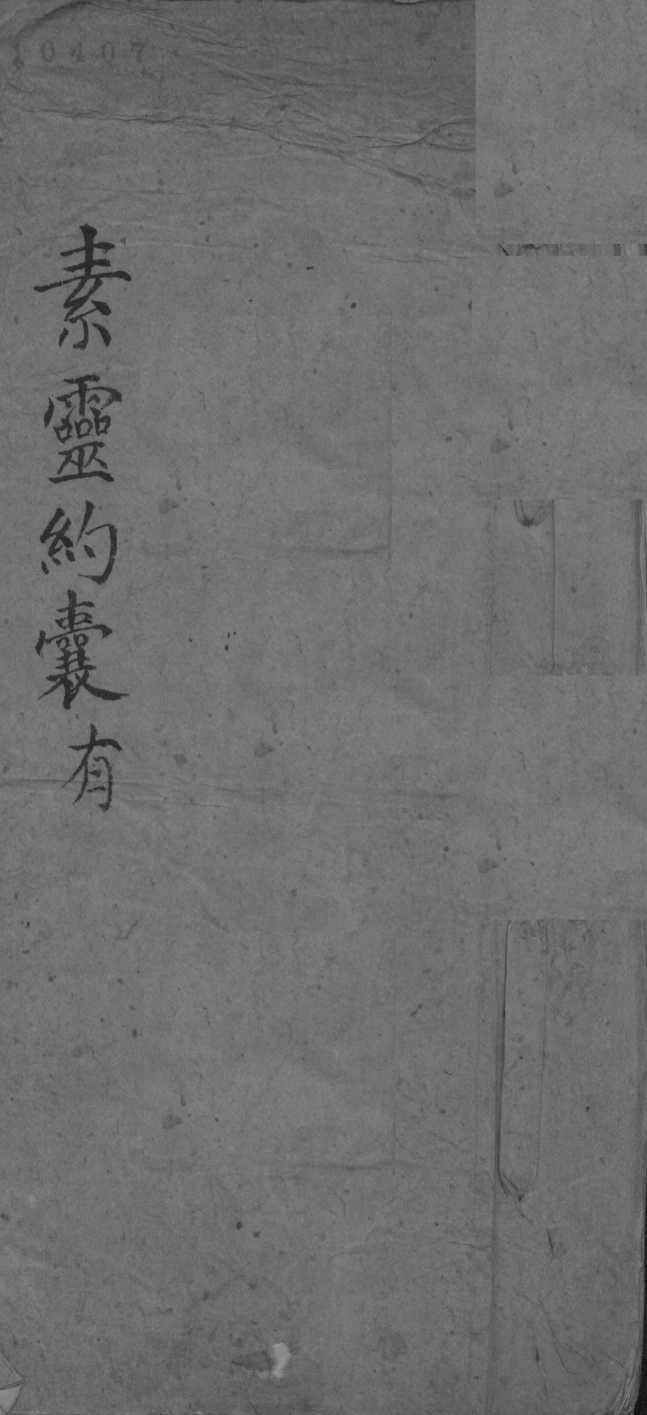 10407
素靈約囊有